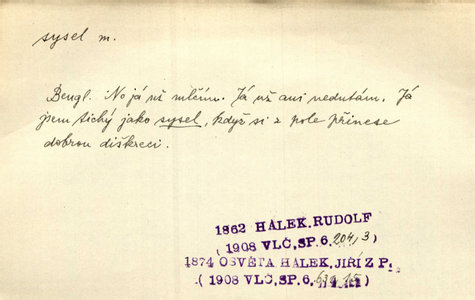 sysel m.
Bengl. No já už mlčím. Já už ani nedutám. Já
jsem tichý jako sysel, když si z pole přinese
dobrou diškreci.
1862 HÁLEK, RUDOLF
(1908 VLČ, SP. 6, 204, 3)
1874 OSVĚTA HÁLEK, JIŘÍ Z P.
(1908 VLČ, SP. 6,